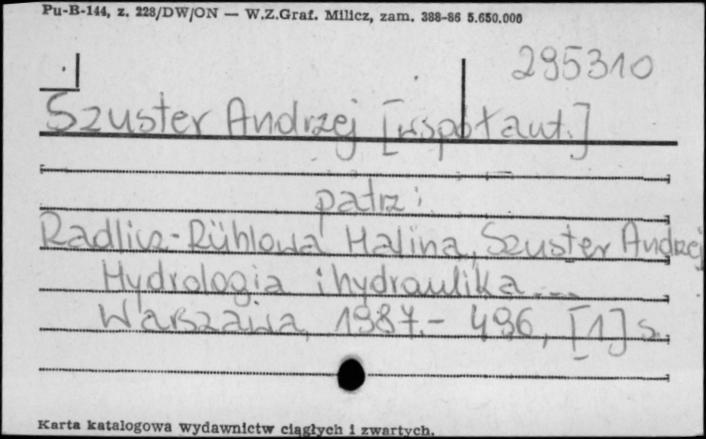 Pu-B-144, z. 228/DW/ON — W.Z.Graf. Milicz, zam. 388-86 5.650.000
295310
Szuster Andrzej [współaut.]
patrz:
Radlicz-Rühlowa Halina, Szuster Andrzej
Hydrologia i hydraulika...
Warszawa, 1987.- 496, [1] s.
Karta katalogowa wydawnictw ciągłych i zwartych.